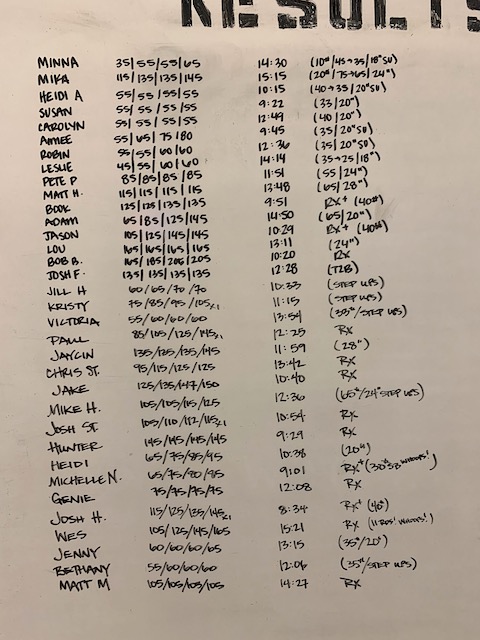 RESULTS
MINNA 35/55/55/65 14:30 (10#/45→35/18" SU)
MIKA 115/135/135/145 15:15 (20#/75→65/24")
HEIDI A 55/55/55/55 10:15 (40→35/20" SU)
SUSAN 55/55/55/55 9:22 (33/20")
CAROLYN 55/55/55/55 12:49 (40/20")
AIMEE 55/65/75/80 9:45 (35/20" SU)
ROBIN 55/55/60/60 12:36 (35/20" SU)
LESLIE 45/55/60/60 14:14 (35→25/18")
PETE P 85/85/85/85 11:51 (55/24")
MATT H. 115/115/115/115 13:48 (65/28")
BOOK 125/125/135/135 9:51 RX+ (40#)
ADAM 65/85/125/145 14:50 (65/20")
JASON 105/125/145/145 10:29 RX+ (40#)
LOU 165/165/165/165 13:11 (24")
BOB B. 165/185/205/205 10:20 RX
JOSH F. 135/135/135/135 12:28 (T2B)
JILL H 60/65/70/70 10:33 (STEP UPS)
KRISTY 75/85/95/105x1 11:15 (STEP UPS)
VICTORIA 55/60/60/60 13:54 (35#/STEP UPS)
PAUL 85/105/125/145x1 12:25 RX
JAYCIN 135/125/135/145 11:59 (28")
CHRIS ST. 95/115/125/125 13:42 RX
JAKE 125/135/147/150 10:40 RX
MIKE H. 105/105/115/125 12:36 (65#/24" STEP UPS)
JOSH ST. 105/110/112/115x1 10:54 RX
HUNTER 145/145/145/145 9:29 RX
HEIDI 65/75/85/95 10:38 (20")
MICHELLE N. 65/75/80/85 9:01 RX+
GENIE 75/75/75/75 12:08 RX
JOSH H. 115/125/135/145x1 8:34 RX+ (40#)
WES 105/125/145/165 15:21 RX
JENNY 60/60/60/65 13:15 (35#/20")
BETHANY 55/60/60/60 12:06 (35#/STEP UPS)
MATT M 105/105/105/105 14:27 RX